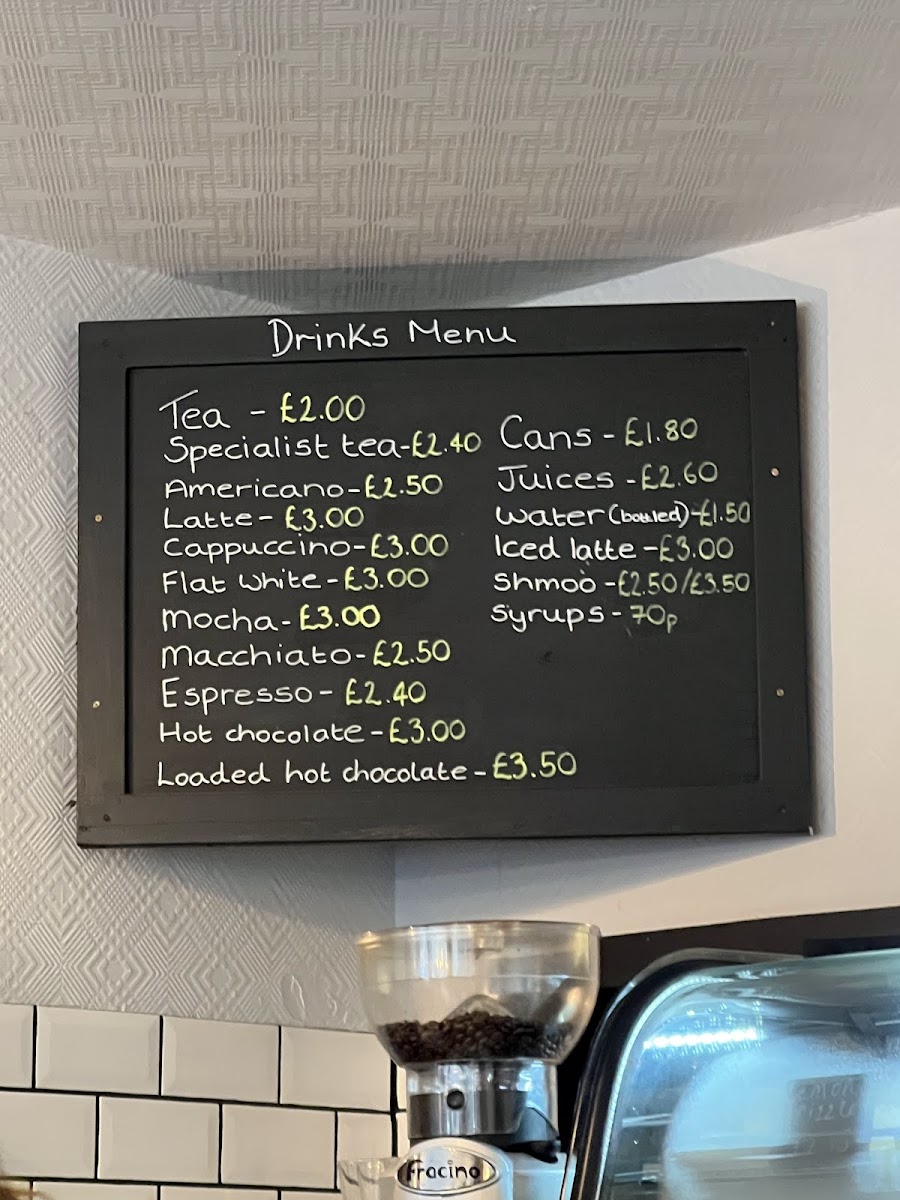 Drinks Menu
Tea - £2.00
Specialist tea-£2.40
Americano-£2.50
Latte- £3.00
Cappuccino-£3.00
Flat white-£3.00
Mocha-£3.00
Macchiato-£2.50
Espresso- £2.40
Hot chocolate-£3.00
Loaded hot chocolate-£3.50
Cans-£1.80
Juices-£2.60
Water(bottled)-£1.50
Iced latte-£3.00
Shmoo-£2.50/£3.50
Syrups-70p
Fracino